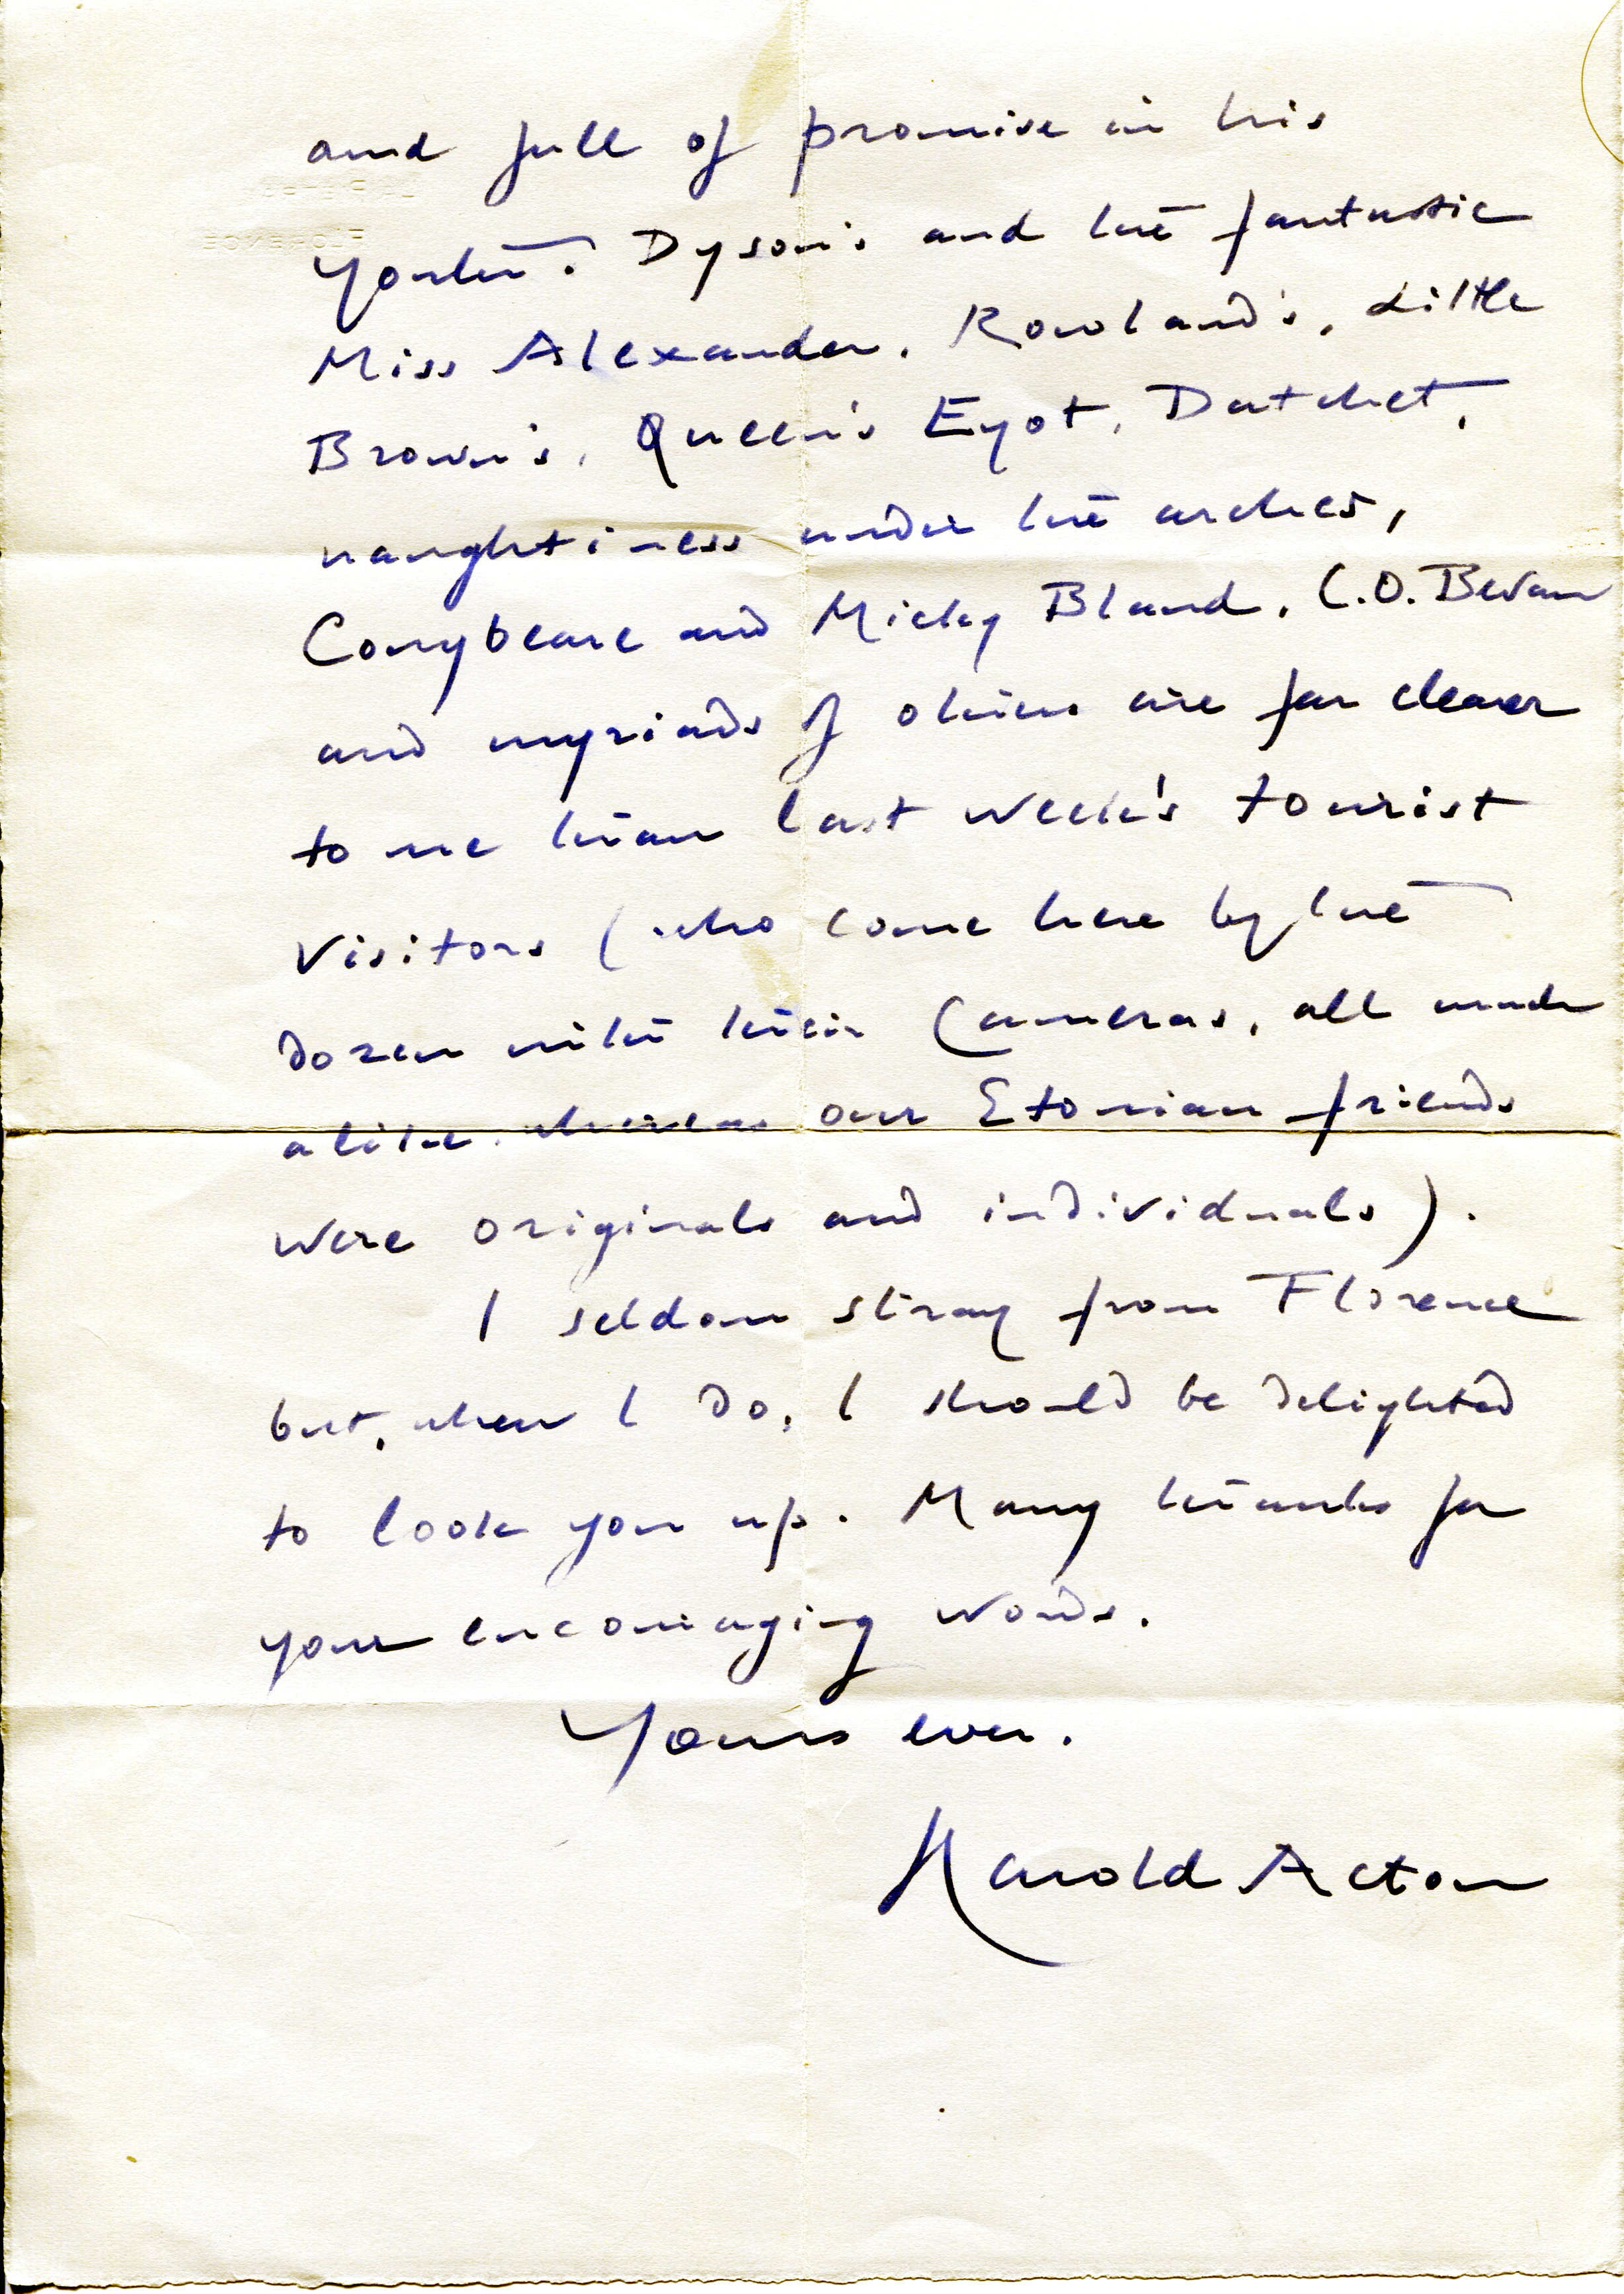 and full of promise in his
youth. Dyson's and the fantastic
Miss Alexander, Rowland's, Little
Brown's, Queen's Eyot, Datchet,
naughtiness under the arches,
Conybeare and Micky Bland, C.O. Bevan
and myriads of others are far clearer
to me than last week's tourist
visitors (who come here by the
dozen with their cameras, all much
alike, whereas our Etonian friends
were originals and individuals).
I seldom stray from Florence
but, when I do, I should be delighted
to look you up. Many thanks for
your encouraging words.
Yours ever,
Harold Acton